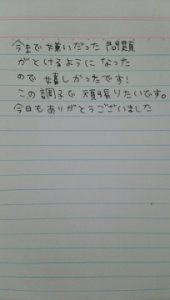 今まで嫌いだった問題
がとけるようになった
ので嬉しかったです!
この調子で頑張りたいです。
今日もありがとうございました